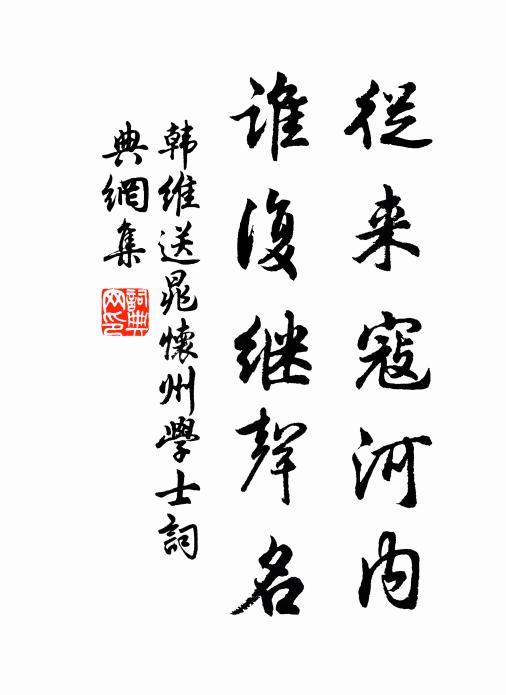 從来寇河内
誰復继聲名
韩維送晁懷州學士詞
典網集
詞典
网印